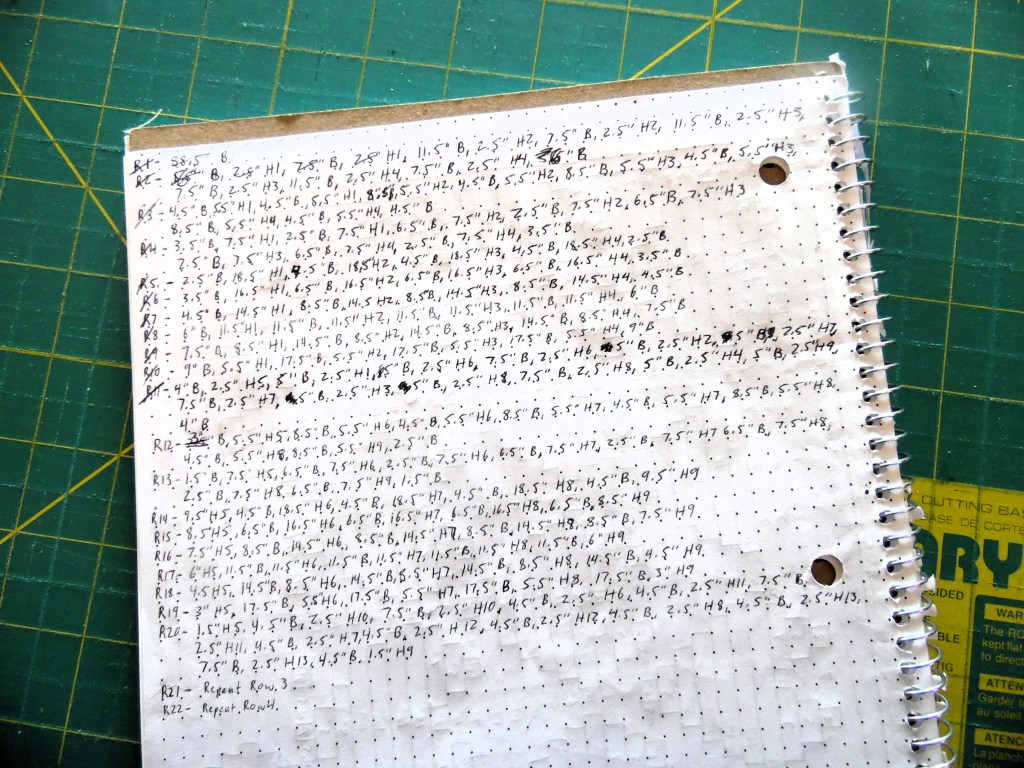 R1- 58.5" B
R2- B, 2.5" H1, 7.5" B, 2.5" H1, 11.5" B, 2.5" H2, 7.5" B, 2.5" H2, 11.5" B, 2.5" H3,
7.5" B, 2.5" H3, 11.5" B, 2.5" H4, 7.5" B, 2.5" H4, B
R3- 4.5" B, 5.5" H1, 4.5" B, 5.5" H1, 8.5" B, 5.5" H2, 4.5" B, 5.5" H2, 8.5" B, 5.5" H3, 4.5" B, 5.5" H3,
8.5" B, 5.5" H4, 4.5" B, 5.5" H4, 4.5" B
R4- 3.5" B, 7.5" H1, 2.5" B, 7.5" H1, 6.5" B, 7.5" H2, 2.5" B, 7.5" H2, 6.5" B, 7.5" H3
2.5" B, 7.5" H3, 6.5" B, 7.5" H4, 2.5" B, 7.5" H4, 3.5" B.
R5- 2.5" B, 18.5" H1, 4.5" B, 18.5" H2, 4.5" B, 18.5" H3, 4.5" B, 18.5" H4, 2.5" B.
R6- 3.5" B, 16.5" H1, 6.5" B, 16.5" H2, 6.5" B, 16.5" H3, 6.5" B, 16.5" H4, 3.5" B.
R7- 4.5" B, 14.5" H1, 8.5" B, 14.5" H2, 8.5" B, 14.5" H3, 8.5" B, 14.5" H4, 4.5" B
R8- 6" B, 11.5" H1, 11.5" B, 11.5" H2, 11.5" B, 11.5" H3, 11.5" B, 11.5" H4, 6" B
R9- 7.5" B, 8.5" H1, 14.5" B, 8.5" H2, 14.5" B, 8.5" H3, 14.5" B, 8.5" H4, 7.5" B
R10- 9" B, 5.5" H1, 17.5" B, 5.5" H2, 17.5" B, 5.5" H3, 17.5" B, 5.5" H4, 9" B
R11- 4" B, 2.5" H5, 5" B, 2.5" H1, 5" B, 2.5" H6, 7.5" B, 2.5" H6, 5" B, 2.5" H2, 5" B, 2.5" H7,
7.5" B, 2.5" H7, 5" B, 2.5" H3, 5" B, 2.5" H8, 7.5" B, 2.5" H8, 5" B, 2.5" H4, 5" B, 2.5" H9,
4" B
R12- B, 5.5" H5, 8.5" B, 5.5" H6, 4.5" B, 5.5" H6, 8.5" B, 5.5" H7, 4.5" B, 5.5" H7, 8.5" B, 5.5" H8,
4.5" B, 5.5" H8, 8.5" B, 5.5" H9, 2.5" B
R13- 1.5" B, 7.5" H5, 6.5" B, 7.5" H6, 2.5" B, 7.5" H6, 6.5" B, 7.5" H7, 2.5" B, 7.5" H7 6.5" B, 7.5" H8,
2.5" B, 7.5" H8, 6.5" B, 7.5" H9, 1.5" B
R14- 9.5" H5, 4.5" B, 18.5" H6, 4.5" B, 18.5" H7, 4.5" B, 18.5" H8, 4.5" B, 9.5" H9
R15- 8.5" H5, 6.5" B, 16.5" H6, 6.5" B, 16.5" H7, 6.5" B, 16.5" H8, 6.5" B, 8.5" H9
R16- 7.5" H5, 8.5" B, 14.5" H6, 8.5" B, 14.5" H7, 8.5" B, 14.5" H8, 8.5" B, 7.5" H9.
R17- 6" H5, 11.5" B, 11.5" H6, 11.5" B, 11.5" H7, 11.5" B, 11.5" H8, 11.5" B, 6" H9.
R18- 4.5" H5, 14.5" B, 8.5" H6, 14.5" B, 8.5" H7, 14.5" B, 8.5" H8, 14.5" B, 4.5" H9.
R19- 3" H5, 17.5" B, 5.5" H6, 17.5" B, 5.5" H7, 17.5" B, 5.5" H8, 17.5" B, 3" H9
R20- 1.5" H5, 4.5" B, 2.5" H10, 7.5" B, 2.5" H10, 4.5" B, 2.5" H6, 4.5" B, 2.5" H11, 7.5" B,
2.5" H11, 4.5" B, 2.5" H7, 4.5" B, 2.5" H12, 4.5" B, 2.5" H12, 4.5" B, 2.5" H8, 4.5" B, 2.5" H13,
7.5" B, 2.5" H13, 4.5" B 1.5" H9
R21- Repeat Row 3
R22- Repeat Row 4.
CUTTING BAS
BASE DE CORTE
ARY
SIDED
WAR
The RO
kept flat
to direct
BLE
TIG
ATTEN
Garder
au soleil
ATENC
La planch